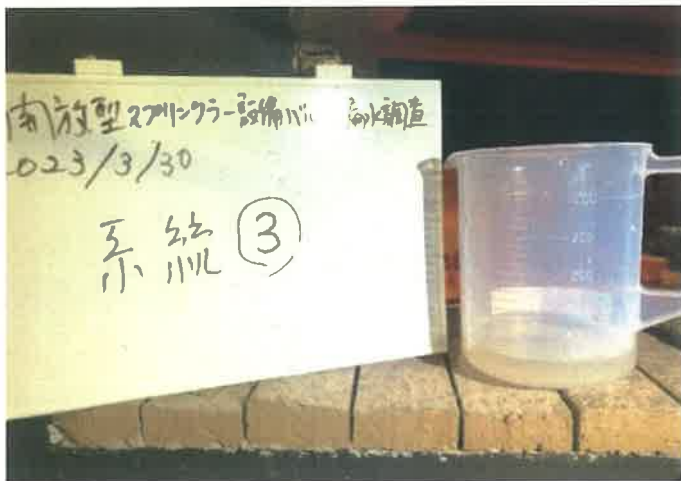 開放型スプリンクラー設備バル 漏水調査
2023/3/30
系統③